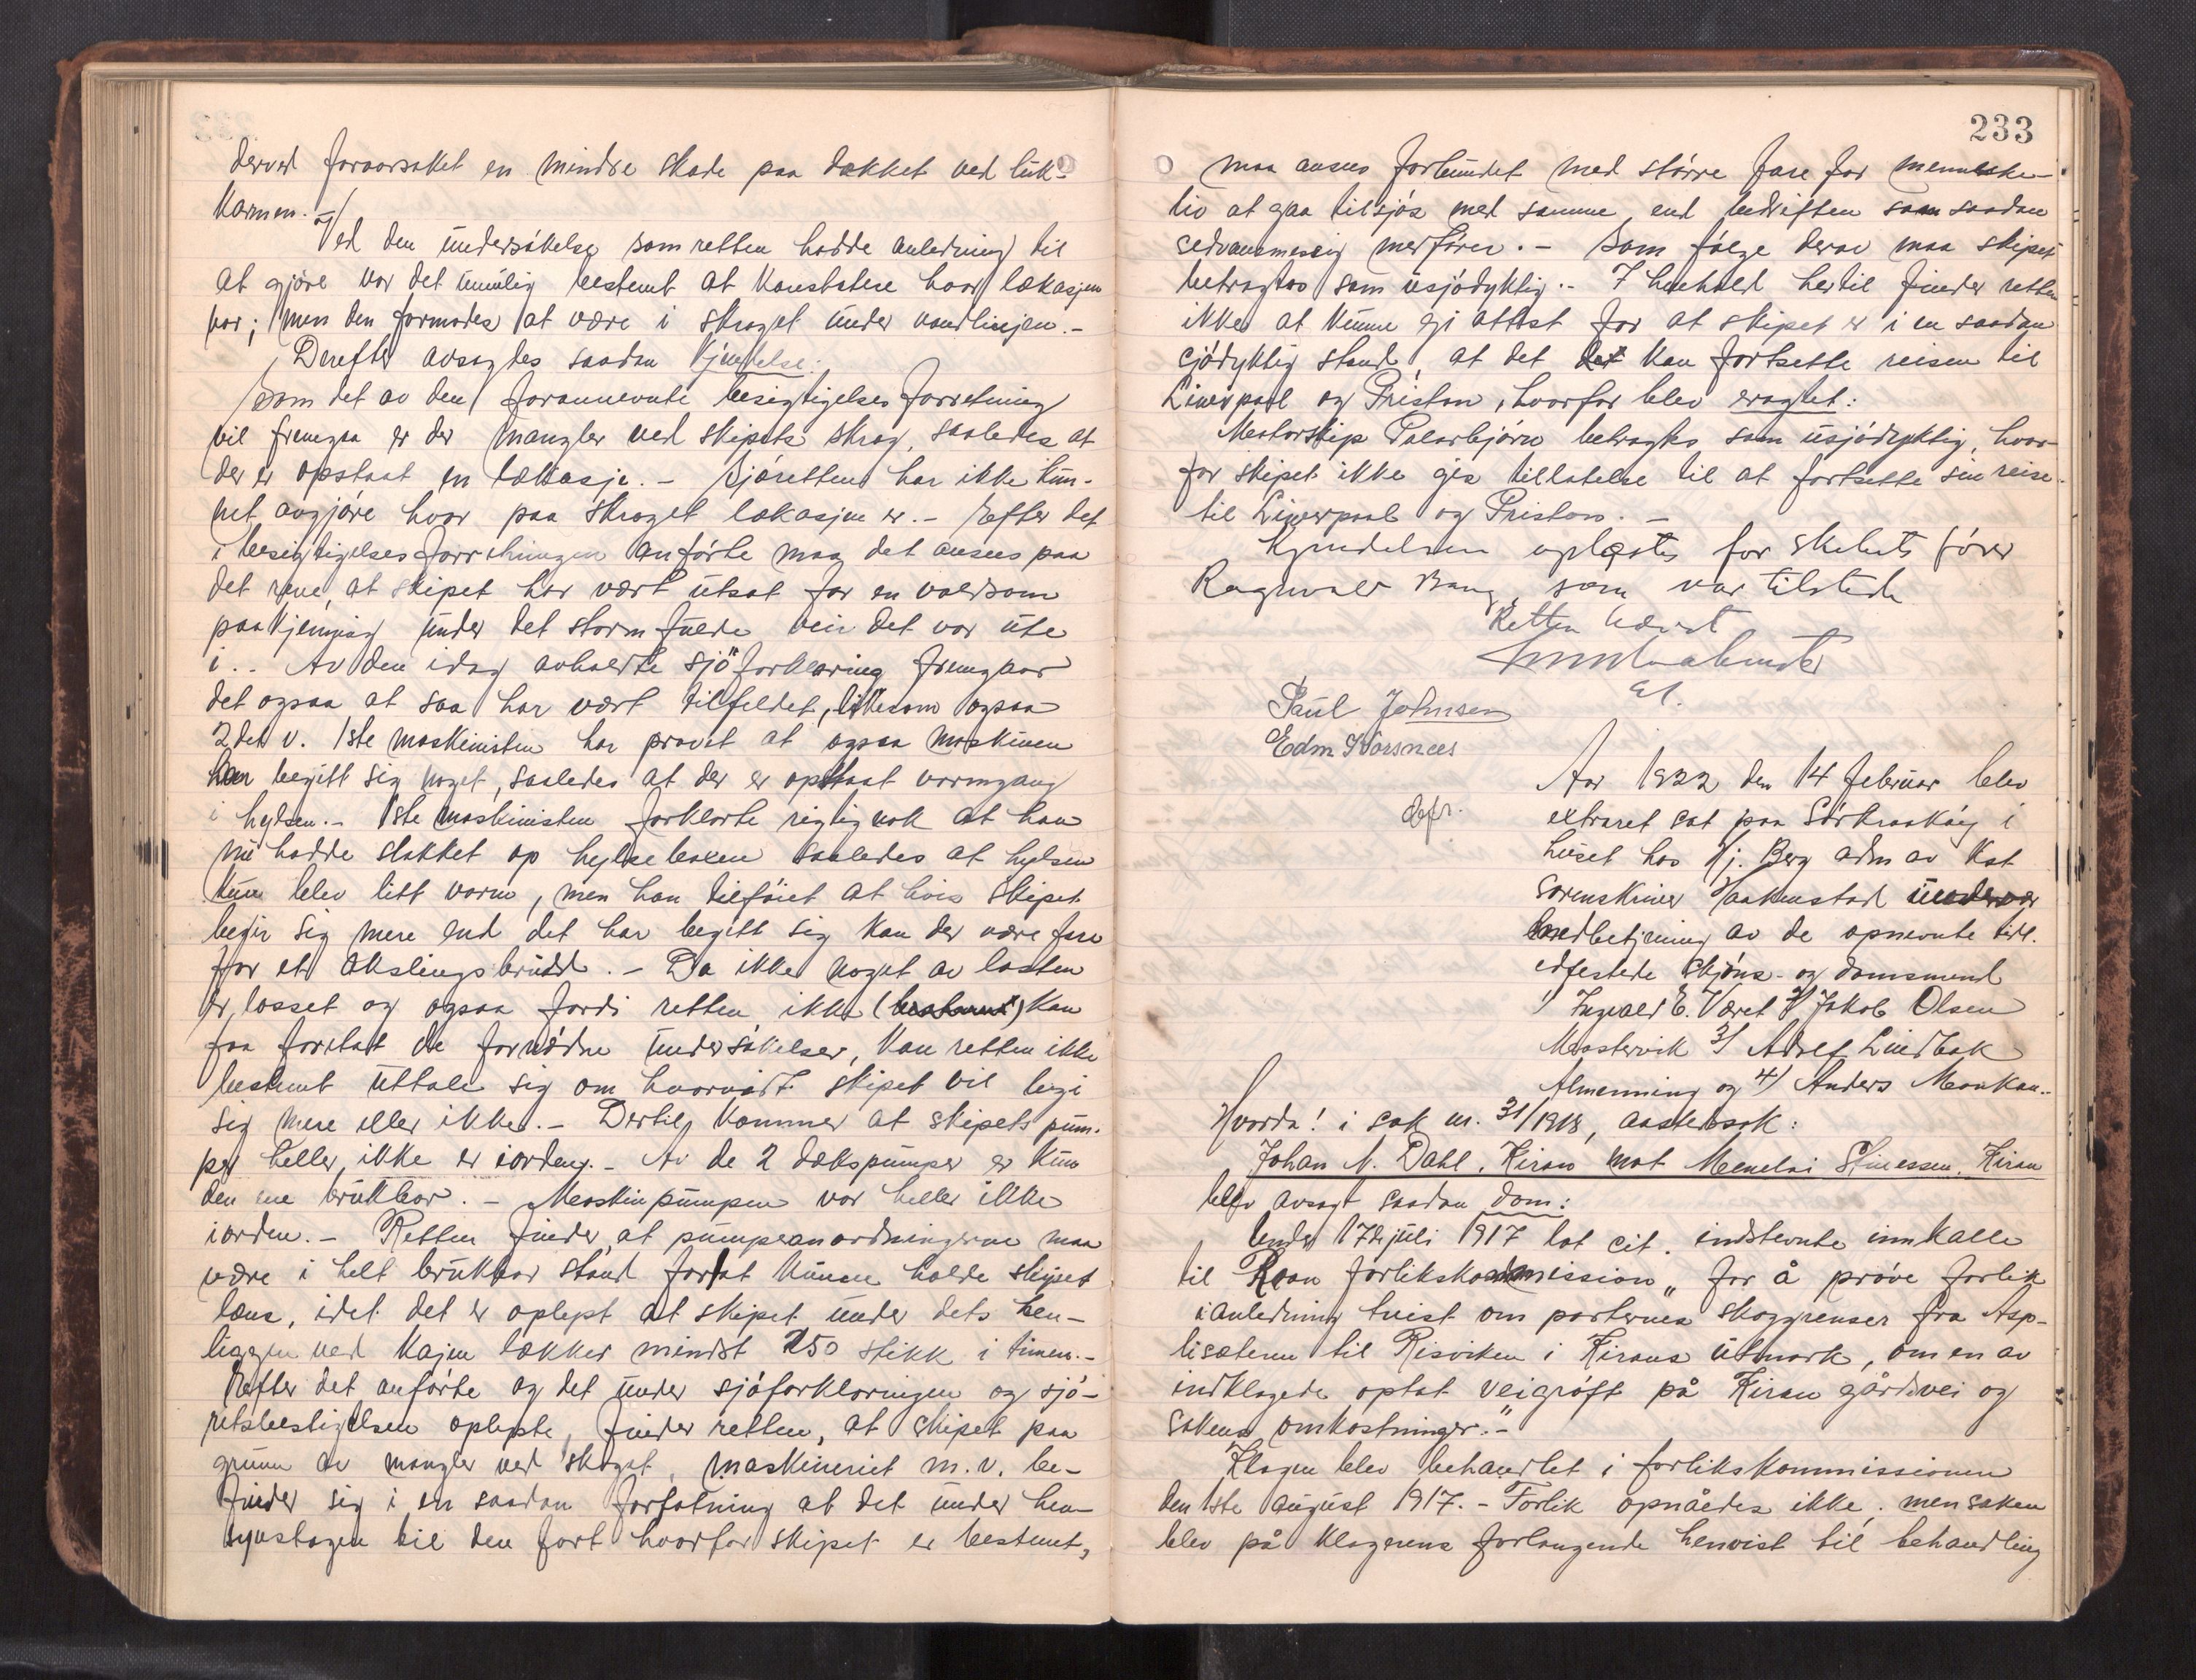 derved foraarsaket en mindre skade paa dækket ved luk-
karmen. -/
Ved den undersøkelse som retten hadde anledning til
at gjøre var det umulig bestemt at konstatere hvor lækasjen
var; men den formodes at være i skroget under vandlinjen. -
Derefter avsagdes saadan kjendelse:
Som det av den forannevnte besigtigelsesforretning
vil fremgaa er der mangler ved skipets skrog, saaledes at
der er opstaat en lækasje. - Sjøretten har ikke kun-
net avgjøre hvor paa skroget lækasjen er. - Efter det
i besigtigelsesforretningen anførte maa det ansees paa
det rene, at skipet har vært utsat for en voldsom
paakjenning under det stormfulde veir det var ute
i. - Av den idag avholdte sjøforklaring fremgaar
det ogsaa at saa har vært tilfeldet, likesom ogsaa
2den v. 1ste maskinisten har provet at ogsaa maskinen
har begitt sig noget, saaledes at der er opstaat varmgang
i hylsen. - 1ste maskinisten forklarte rigtignok at han
nu hadde slakket op hylseboxen saaledes at hylsen
kun blev litt varm, men han tilføiet at hvis skipet
begir sig mere end det har begitt sig kan der være fare
for et akslingsbrudd. - Da ikke noget av lasten
er losset og ogsaa fordi retten ikke (bestemt) kan
faa foretat de fornødne undersøkelser, kan retten ikke
bestemt uttale sig om hvorvidt skipet vil begi
sig mere eller ikke. - Dertil kommer at skipets pum-
per heller ikke er iorden. - Av de 2 dækspumper er kun
den ene brukbar. - Maskinpumpen var heller ikke
iorden. - Retten finder, at pumpeanordningerne maa
være i helt brukbar stand forat kunne holde skipet
læns, idet det er oplyst at skipet under dets hen-
liggen ved kajen lækker mindst 250 stikk i timen. -
Efter det anførte og det under sjøforklaringen og sjø-
retsbestigelsen oplyste, finder retten, at skipet paa
grunn av mangler ved skroget, maskineriet m.v. be-
finder sig i en saadan forfatning at det under hen-
synstagen til den fart hvorfor skipet er bestemt,
233
maa ansees forbundet med større fare for menneske-
liv at gaa tilsjøs med samme, end bedriften som saadan
sedvansmessig medfører. - Som følge derav maa skipet
betragtes som usjødyktig. - I henhold hertil finder retten
ikke at kunne gi attest for at skipet er i en saadan
sjødyktig stand, at det det kan fortsette reisen til
Liverpool og Priston, hvorfor blev eragtet:
Motorskip Polarbjørn betragtes som usjødyktig, hvor-
for skipet ikke gis tillatelse til at fortsette sin reise
til Liverpool og Priston. -
Kjendelsen oplæstes for skibets fører
Ragnvald Bang, som var tilstede
Retten hævet
Paul Johnsen
Edm Horsnæs
Aar 1922 den 14 februar blev
extraret sat paa Sørkraakøy i
huset hos Hj. Berg adm av kst
sorenskriver Haakenstad under
medbetjening av de opnevnte tidl.
edfestede skjøns- og domsmend
1/ Ingvald E. Været 2/ Jakob Olsen
Mastervik 3/ Adolf Lindbak
Almenning og 4/ Anders Monkan..
Hvorda! i sak nr. 31/1918, aastedssak:
Johan N. Dahl, Kiran mot Menelai Stinessen, Kiran
blev avsagt saadan dom:
Under 17de juli 1917 lot cit. indstevnte innkalle
til Roan forlikskommission „for å prøve forlik
i anledning tvist om parternes skoggrenser fra Asp-
lisæteren til Risviken i Kirans utmark, om en av
indklagede optat veigrøft på Kiran gårdsvei og
sakens omkostninger." -
Klagen blev behandlet i forlikskommissionen
den 1ste august 1917. - Forlik opnåedes ikke, men saken
blev på klagerens forlangende henvist til behandling